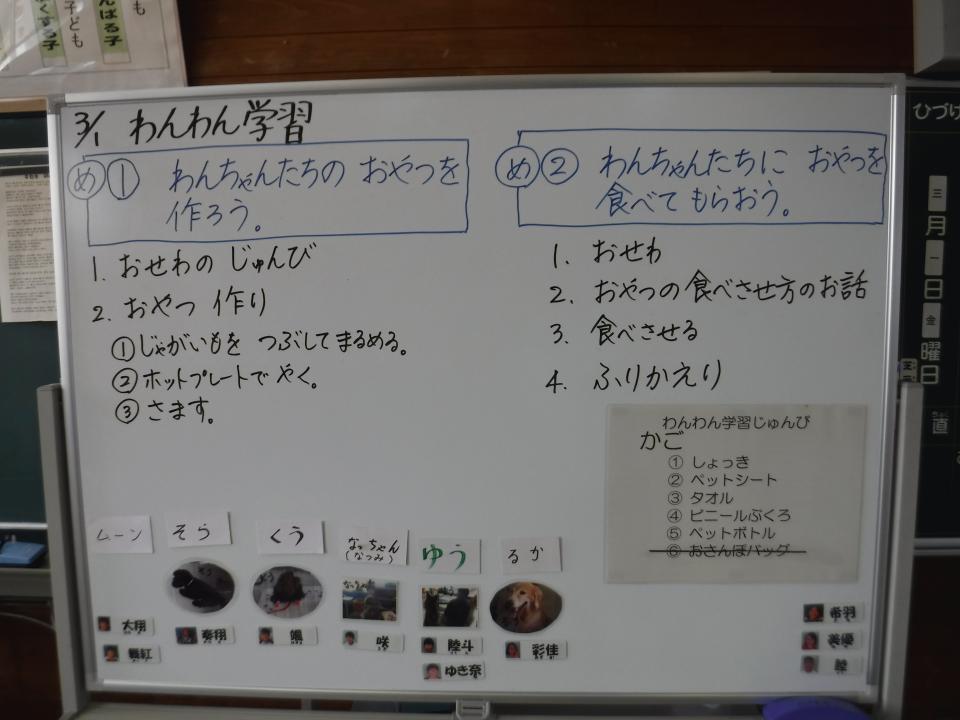 も
んばる子
子ども
くする子
3/1 わんわん学習
め① わんちゃんたちの おやつを
作ろう。
1. おせわの じゅんび
2. おやつ 作り
①じゃがいもを つぶしてまるめる。
②ホットプレートで やく。
③さます。
め② わんちゃんたちに おやつを
食べて もらおう。
1. おせわ
2. おやつの食べさせ方のお話
3. 食べさせる
4. ふりかえり
わんわん学習じゅんび
かご
① しょっき
② ペットシート
③ タオル
④ ビニールぶくろ
⑤ ペットボトル
⑥ おさんぽバッグ
ムーン
そら
くう
なっちゃん
(なつみ)
ゆう
るか
太翔
奏翔
颯
咲
陸斗
彩佳
ゆき奈
希羽
美優
陸
ひづけ
三
月
一
日
金
曜
日
直